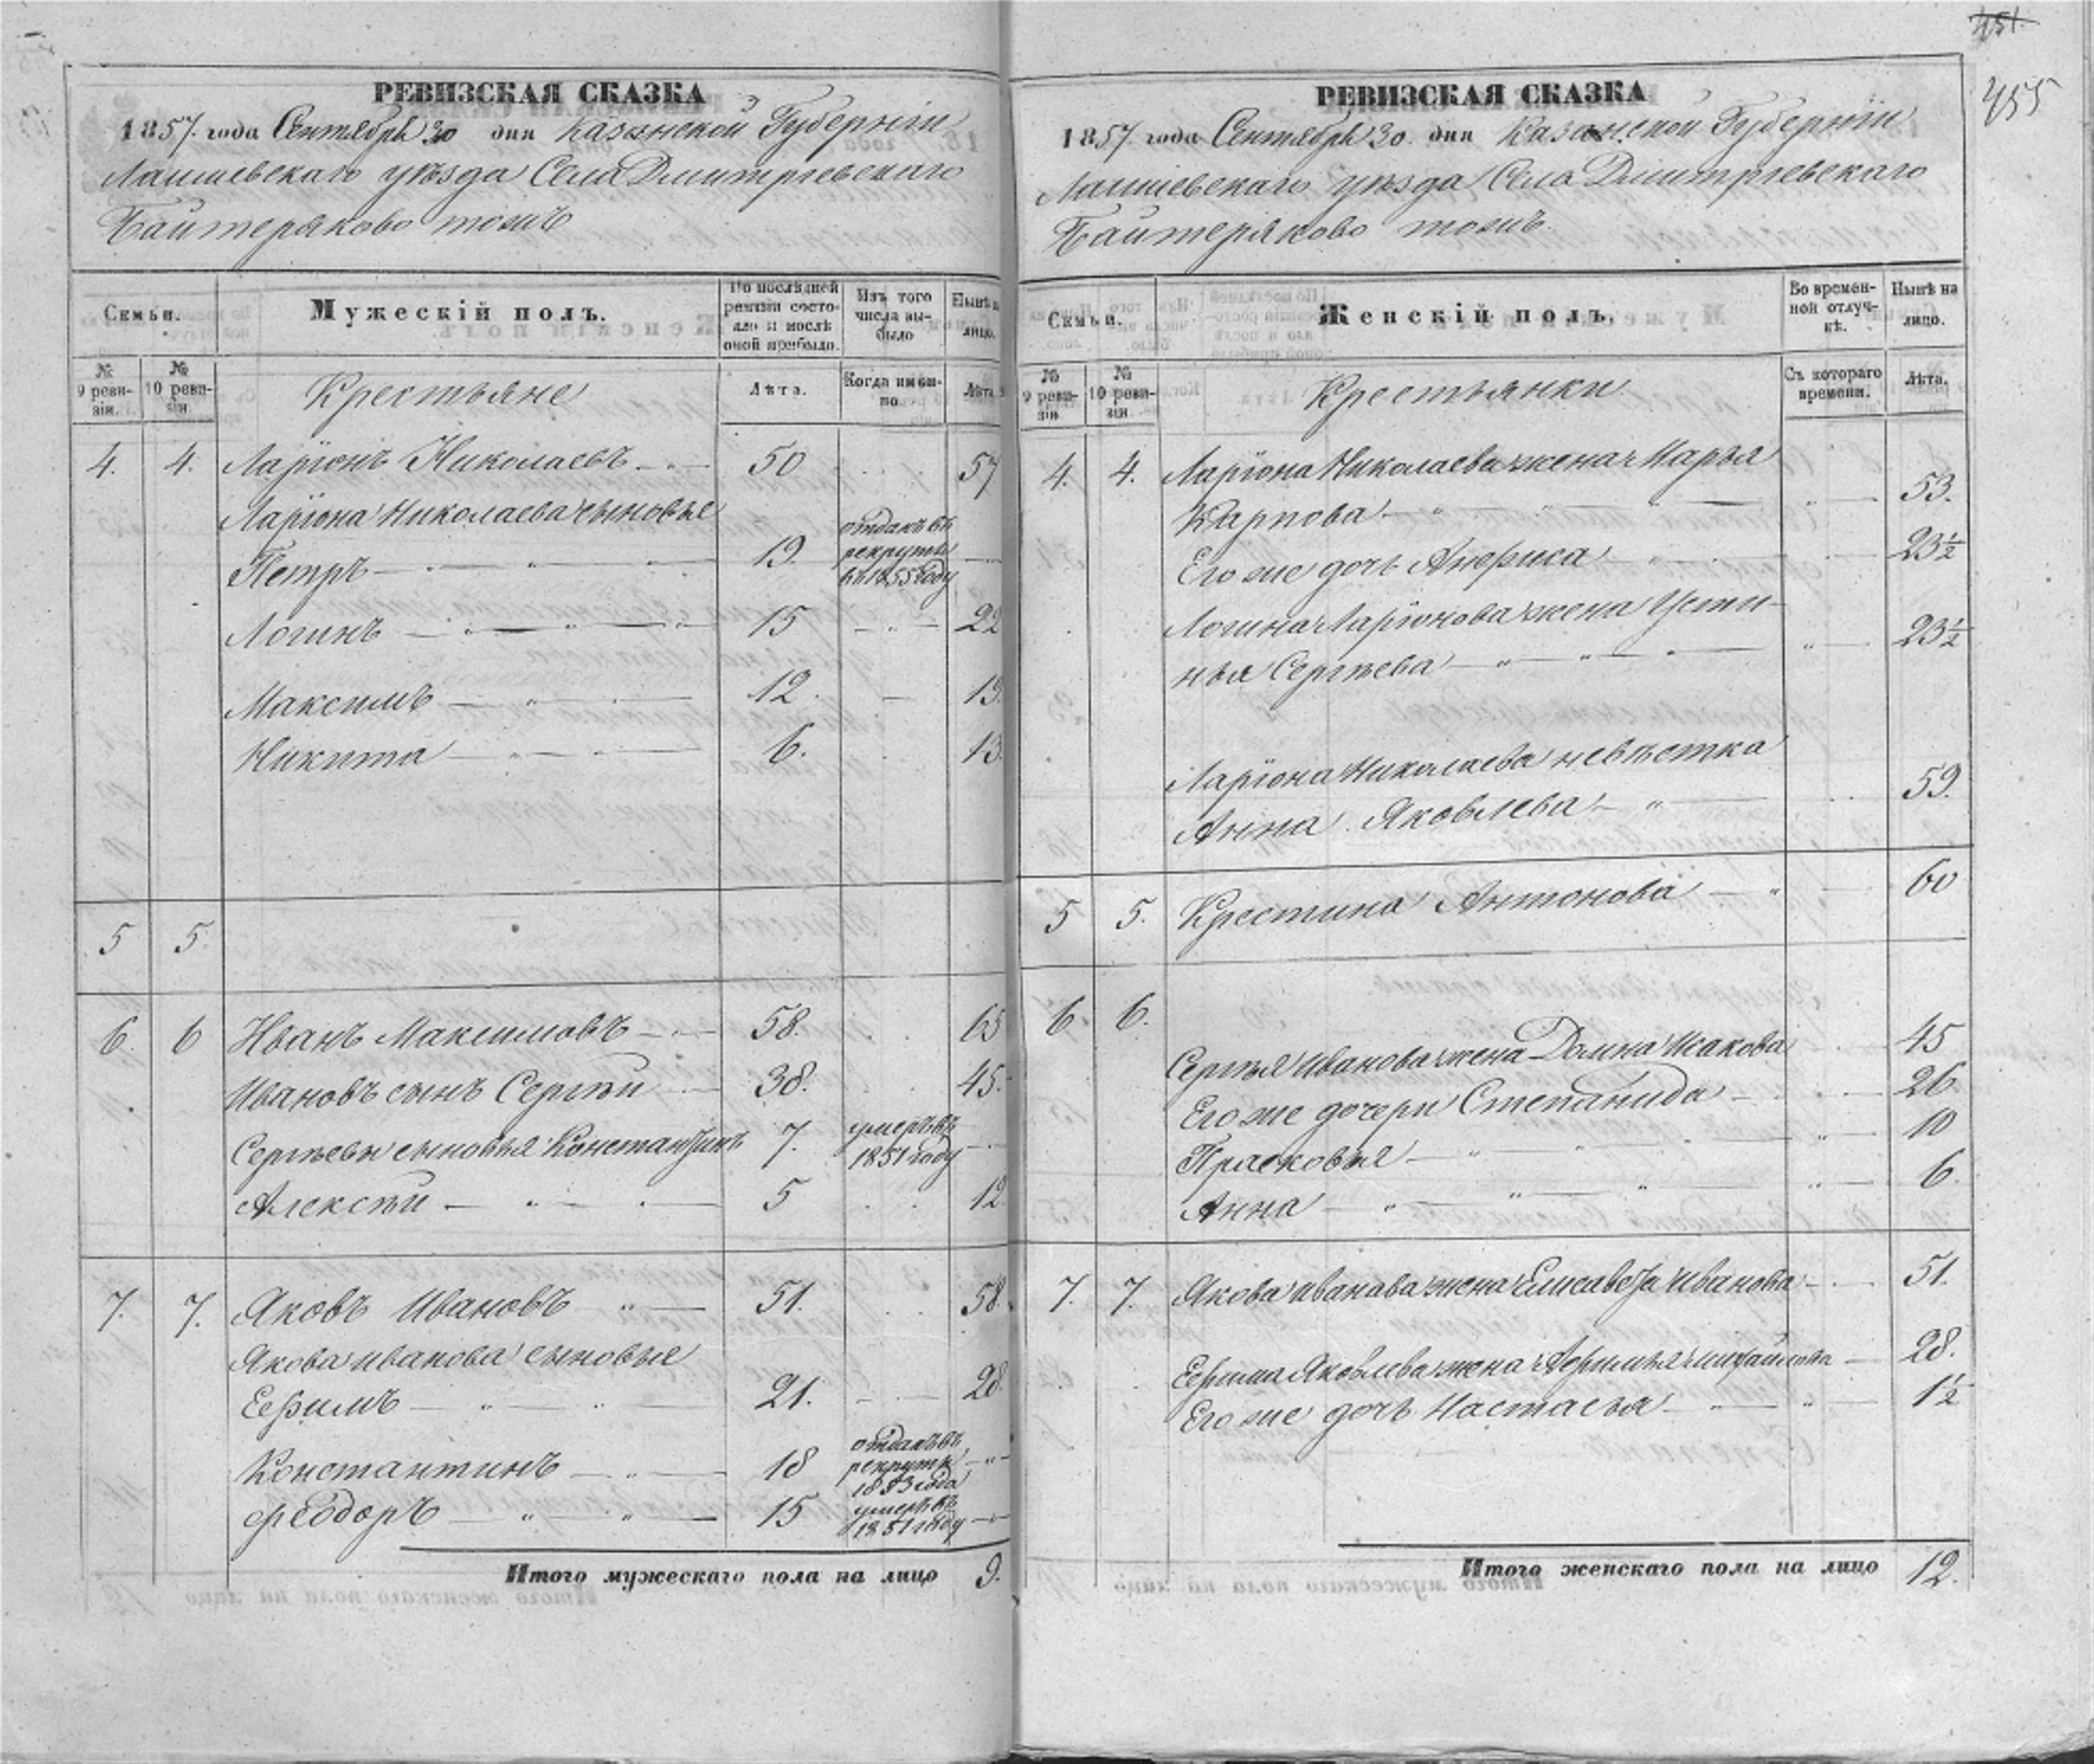 РЕВИЗСКАЯ СКАЗКА
1857. года Сентября 30 дня Казанской Губерніи
Лаишевскаго уѣзда Села Дмитріевскаго
Байтеряково тожъ
Семьи.
Мужескій полъ.
По послѣдней ревизіи состояло и послѣ оной прибыло.
Изъ того числа выбыло
Нынѣ на лицо.
№ 9 ревизіи.
№ 10 ревизіи.
Крестьяне
Лѣта.
Когда именно
Лѣта
4. 4. Ларіонъ Николаевъ 50 57
Ларіона Николаева сыновье
Петръ 19 отданъ въ рекруты въ 1855 году
Логинъ 15 22
Максимъ 12. 19.
Никита 6. 13.
5 5.
6. 6 Иванъ Максимовъ 58. 65
Ивановъ сынъ Сергѣй 38. 45.
Сергѣевы сыновья Константинъ 7. умеръ въ 1851 году
Алексѣй 5 12
7. 7. Яковъ Ивановъ 51. 58.
Якова Иванова сыновье
Ефимъ 21. 28.
Константинъ 18 отданъ въ рекруты 1853 года
Феодоръ 15 умеръ въ 1851 году
Итого мужескаго пола на лицо 9.
451.
455
РЕВИЗСКАЯ СКАЗКА
1857. года Сентября 30. дня Казанской Губерніи
Лаишевскаго уѣзда Села Дмитріевскаго
Байтеряково тожъ.
Семьи.
Женскій полъ.
Во временной отлучкѣ.
Нынѣ на лицо.
№ 9 ревизіи
№ 10 ревизіи
Крестьянки
Съ котораго времени.
Лѣта.
4. 4. Ларіона Николаева жена Марья
Карпова 53.
Его же дочь Анфиса 23½
Логина Ларіонова жена Усти-
нья Сергѣева 23½
Ларіона Николаева невѣстка
Анна Яковлева 59.
5 5. Крестина Антонова 60
6. 6.
Сергѣя Иванова жена Домна Исакова 45
Его же дочери Степанида 26.
Прасковья 10
Анна 6.
7. 7. Якова Иванова жена Елисавета Иванова 51.
Ефима Яковлева жена Афимья Михайлова 28.
Его же дочь Настасья 1½
Итого женскаго пола на лицо 12.